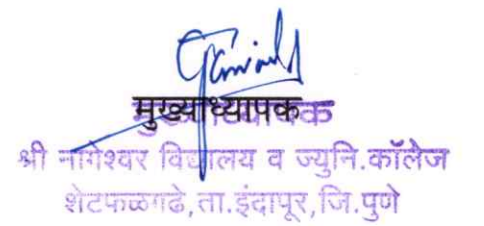 मुख्याध्यापक
मुख्याध्यापक
श्री नागेश्वर विद्यालय व ज्युनि.कॉलेज
शेटफळगढे,ता.इंदापूर,जि.पुणे